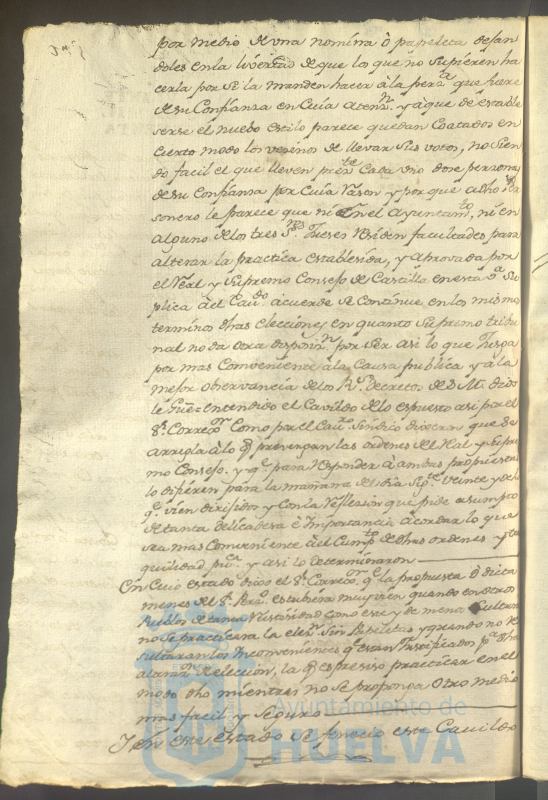 por medio de una nomina ò papeleta dejan
doles en la livertad de que lo que no supieren ha
cerla por si la manden hacer à la perª que fuere
de su Confianza en Cuia atenn. y à que de estable
serse el nuebo estilo parece quedan Coatados en
Cierto modo los vecinos de llevar sus votos, no sien
do facil el que lleven Cada uno dose personas
de su Confianza por Cuia rason y por que à dho
sonero le parece que ni en el Ayuntamto, ni en
alguno de los tres Sres Jueses residen facultades para
alterar la practica establesida, y aprovada por
el Real y Supremo Consejo de Castilla en esta Sup
plica à el Cavdo acuerde se Continue en los mismos
terminos dhas elecciones en quanto Supremo tribu
nal no da otra disposin. por ser asi lo que Jusga
por mas Conveniente à la Causa publica y à la
mejor observancia de los Rs. Decretos de S.M. dados
le fue= entendido el Cavildo de lo espuesto asi por el
Sr. Corregor Como por el Cavo Sindico dixeron que se
arregla à lo q prevengan las ordenes de el Ral y Supre
mo Consejo. y q para responder à ambas propuestas
lo difieren para la mañana de el dia sigte veinte y dos
qe vien dirijidos y con la reflexion que pide asumpto
de tanta delicadesa è Importancia acordar lo que
sea mas Comveniente à el Cumpto de dhas ordenes y tran
quilidad puca. y asi lo determinaron
En Cuio estado dixo el Sr. Corregor qe la propuesta ò dicta
menes de el Sr. Perso. estubiera muy bien quando en otros
Pueblos de tanta Vastasidad como este y de menos
no se practicara la elecn sin Papeletas y quando no re
sultaran los Inconvenientes q estan Justificados pr
Eleccion, la q es presiso practicar en el
modo dho mientras no se proponga otro medio
mas facil y Seguro
Y en este estado se fenecio este Cavildo
Ayuntamiento de
HUELVA